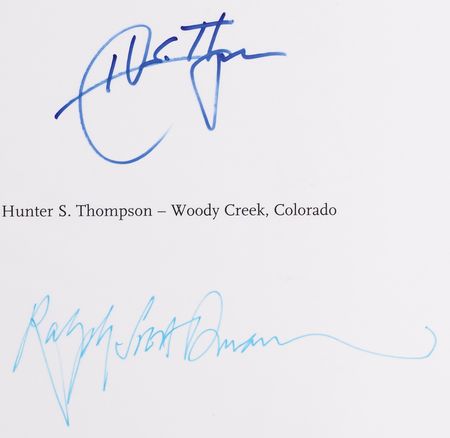 H. S. Thompson
Hunter S. Thompson – Woody Creek, Colorado
Ralph Steadman